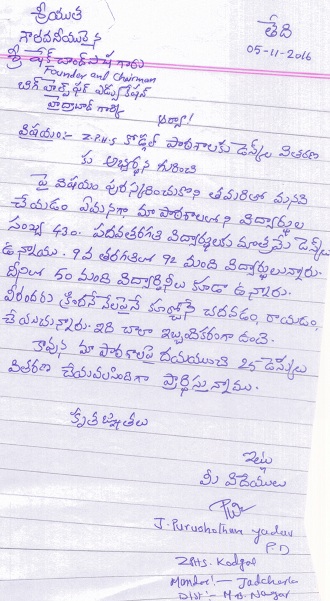 శ్రీయుత
గౌరవనీయులైన
తేది
05-11-2016
శ్రీ షేక్ చాంద్ పాష గారు
Founder and Chairman
బిగ్ హెల్ప్ ఫర్ ఎడ్యుకేషన్
హైద్రాబాద్ గార్కి
ఆర్యా!
విషయం:- Z.P.H.S కోడ్గల్ పాఠశాలకు డెస్క్‌ల వితరణ
కు అభ్యర్థన గురించి
పై విషయం పురస్కరించుకొని తమరితో మనవి
చేయడం ఏమనగా మా పాఠశాలలోని విద్యార్థుల
సంఖ్య 430. పదవతరగతి విద్యార్థులకు మాత్రమే డెస్క్‌లు
ఉన్నాయి. 9వ తరగతిలో 92 మంది విద్యార్థులున్నారు.
దీనిలో 60 మంది విద్యార్థినీలు కూడా ఉన్నారు.
వీరందరు క్రింద నేలపైనే కూర్చోని చదవడం, రాయడం,
చేయుచున్నారు. ఇది చాలా ఇబ్బందికరంగా ఉంది.
కావున మా పాఠశాలపై దయయుంచి 25 డెస్క్‌లు
వితరణ చేయవలసిందిగా ప్రార్థిస్తున్నాము.
కృతజ్ఞతలు
ఇట్లు
మీ విదేయులు
J. Purushotham yadav
P.D
ZPHS. Kodgal
Mandal:- Jadcherla
Dist:- M.B. Nagar